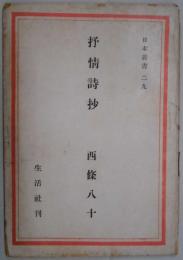 日本叢書 二九
抒情詩抄 西條八十
生活社刊